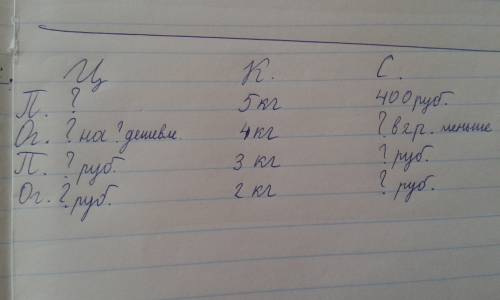 Ц К. С.
П. ? 5 кг 400 руб.
Ог. ? на ? дешевле. 4 кг ? в 2 р. меньше
П. ? руб. 3 кг ? руб.
Ог. ? руб. 2 кг ? руб.